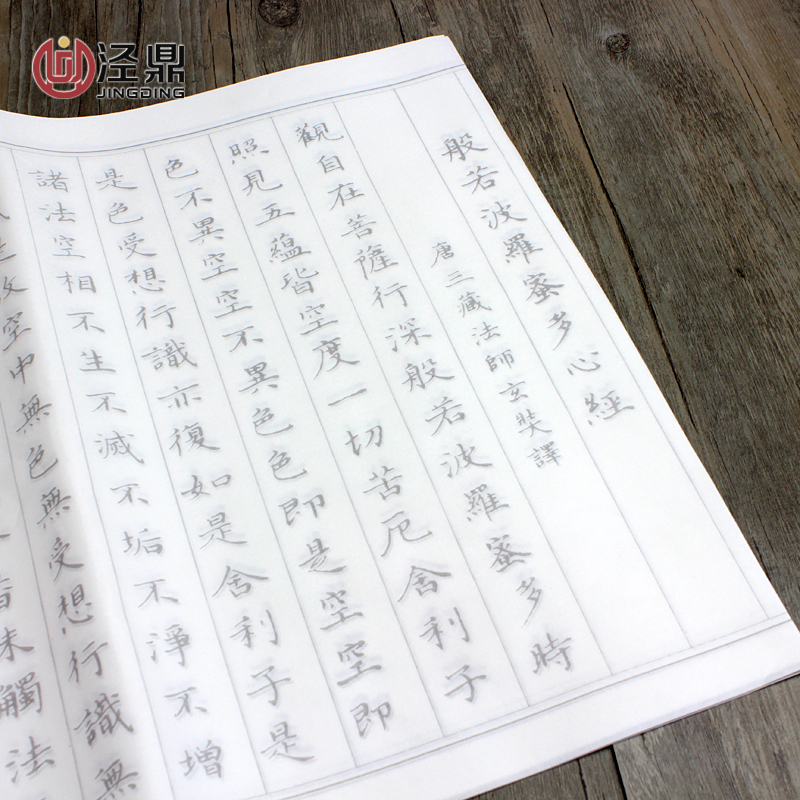 泾鼎
JINGDING
般若波羅蜜多心經
唐三藏法師玄奘譯
觀自在菩薩行深般若波羅蜜多時
照見五蘊皆空度一切苦厄舍利子
色不異空空不異色色即是空空即
是色受想行識亦復如是舍利子是
諸法空相不生不滅不垢不淨不增
是故空中無色無受想行識無
香味觸法